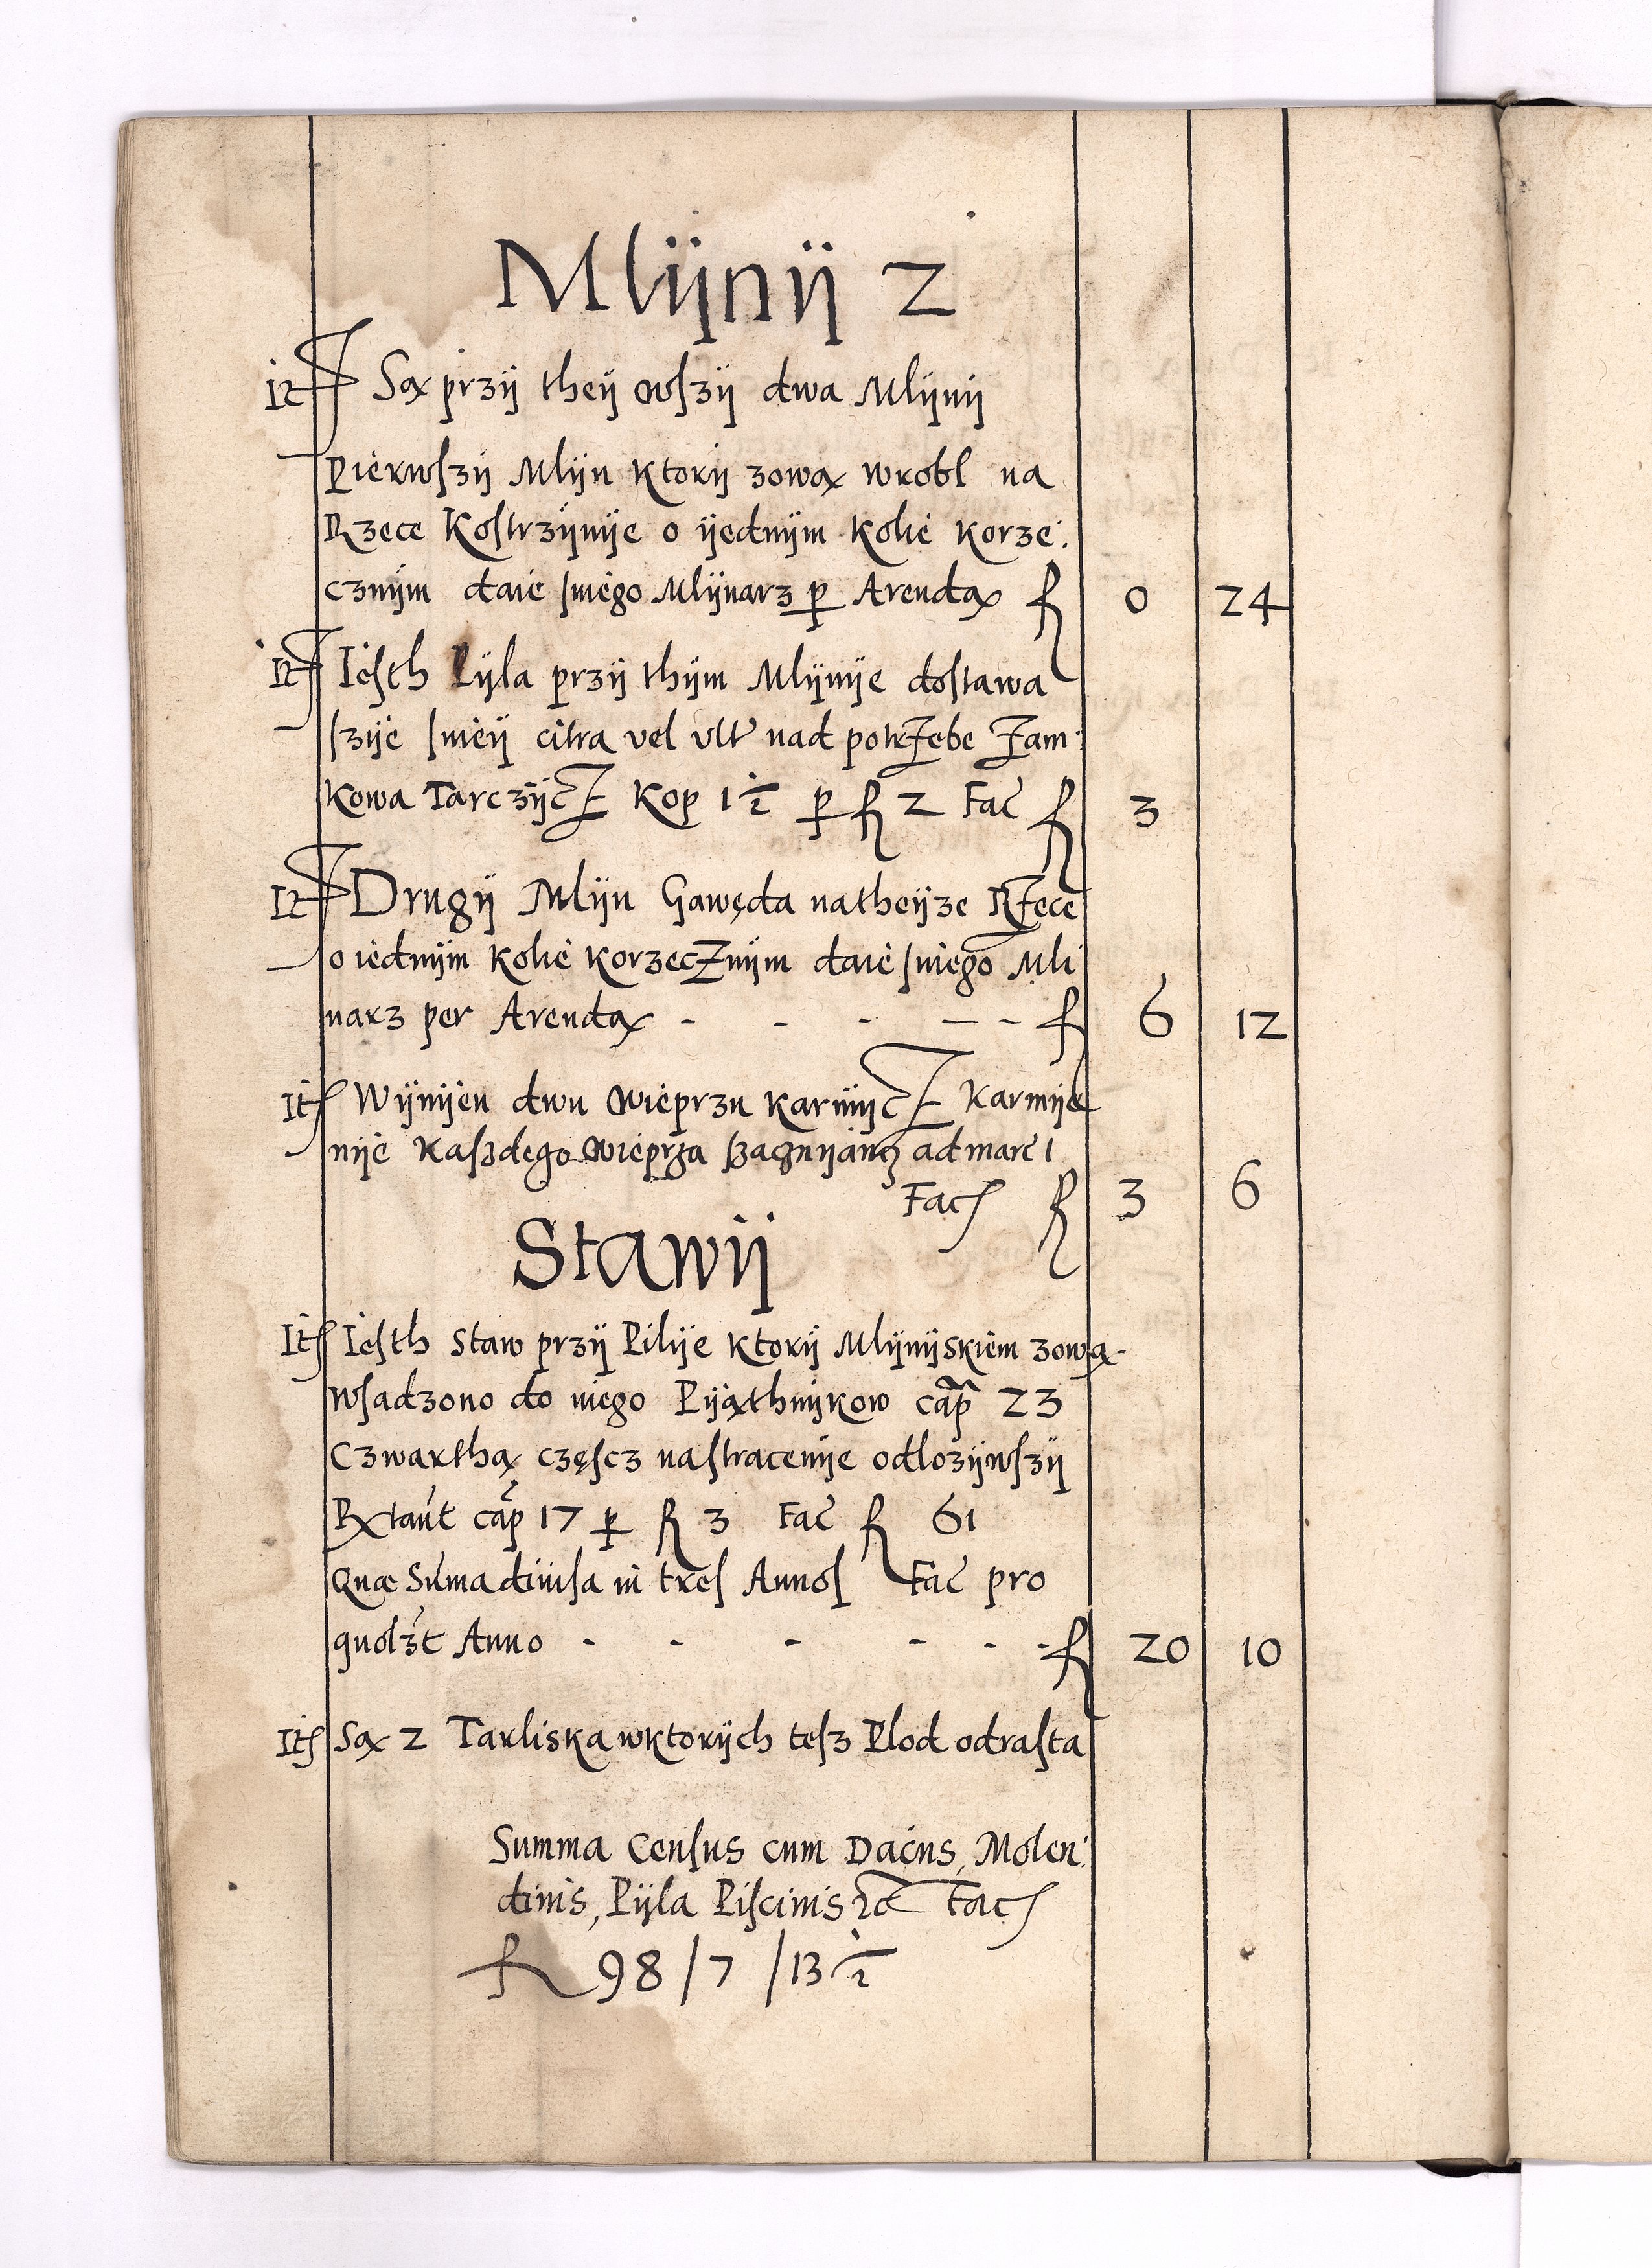 Mlÿnÿ 2
It Są przÿ theÿ wſzÿ dwa Mlÿnÿ
Pierwſzÿ Mlÿn ktorÿ zową wrobl na
Rzece Koſtrzÿnÿe o ÿednÿm kolie korze:
cznÿm daie ſniego Mlÿnarz p Arendą fl 0 24
It Ieſth Pÿla przÿ thÿm Mlÿnÿe doſtawa
ſzÿe ſnieÿ citra vel vltr nad potrzebe zam:
kowa Tarczÿcz kop 1½ p fl 2 Fac fl 3
It Drugÿ Mlÿn Gawęda natheÿze Rzece
o iednÿm kolie korzecznÿm daie ſniego Mli
narz per Arendą - - - - - fl 6 12
It Wÿnÿen dwu wieprzu karmÿcz karmÿe
nÿe kaſzdego wieprza ad marc 1
Fac fl 3 6
Stawÿ
It Ieſth Staw przÿ Pilÿe ktorÿ Mlÿnÿskiem zową
Wſadzono do niego Pÿąthnÿkow cap 23
Czwarthą częſcz naſtracenÿe odlozÿwſzÿ
Extant cap 17 p fl 3 Fac fl 61
Quæ Suma diuiſa in tres Annos Fac pro
quolzt Anno - - - - - - fl 20 10
It Są 2 Tarliska wktorÿch teſz Plod odraſta
Summa Cenſus cum Dacÿs, Molen:
dinis, Pÿla Piſcinis &c Fac
fl 98 / 7 / 13½